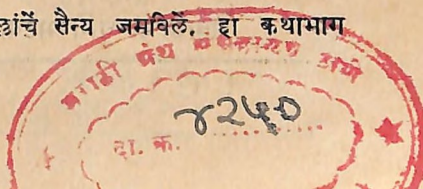 ळांचें सैन्य जमविलें. हा कथाभाग
मराठी ग्रंथ संग्रहालय ठाणें
दा. क. ४२५०